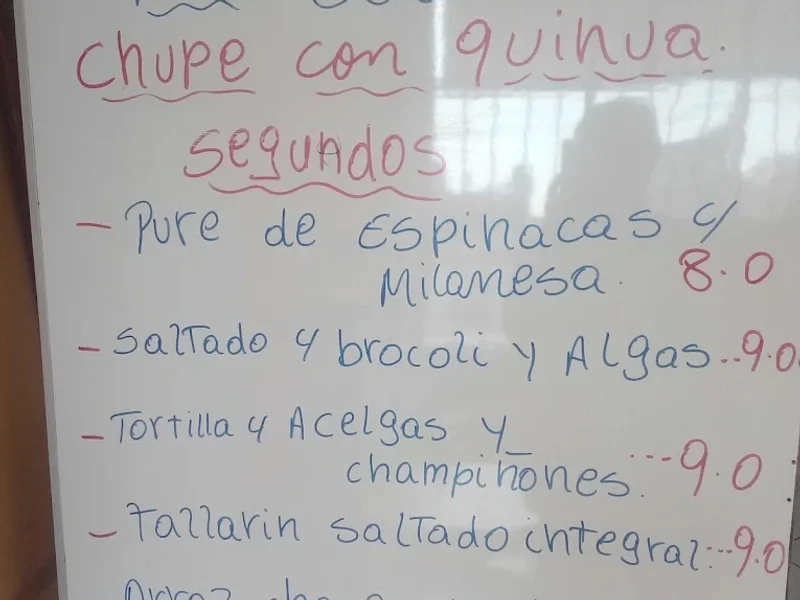 Chupe con quinua.
Segundos
- Pure de Espinacas c/
Milanesa. 8.0
- Saltado c/ brocoli y Algas..9.0
- Tortilla c/ Acelgas y
champiñones....9.0
- Tallarin saltado integral:...9.0
Arroz